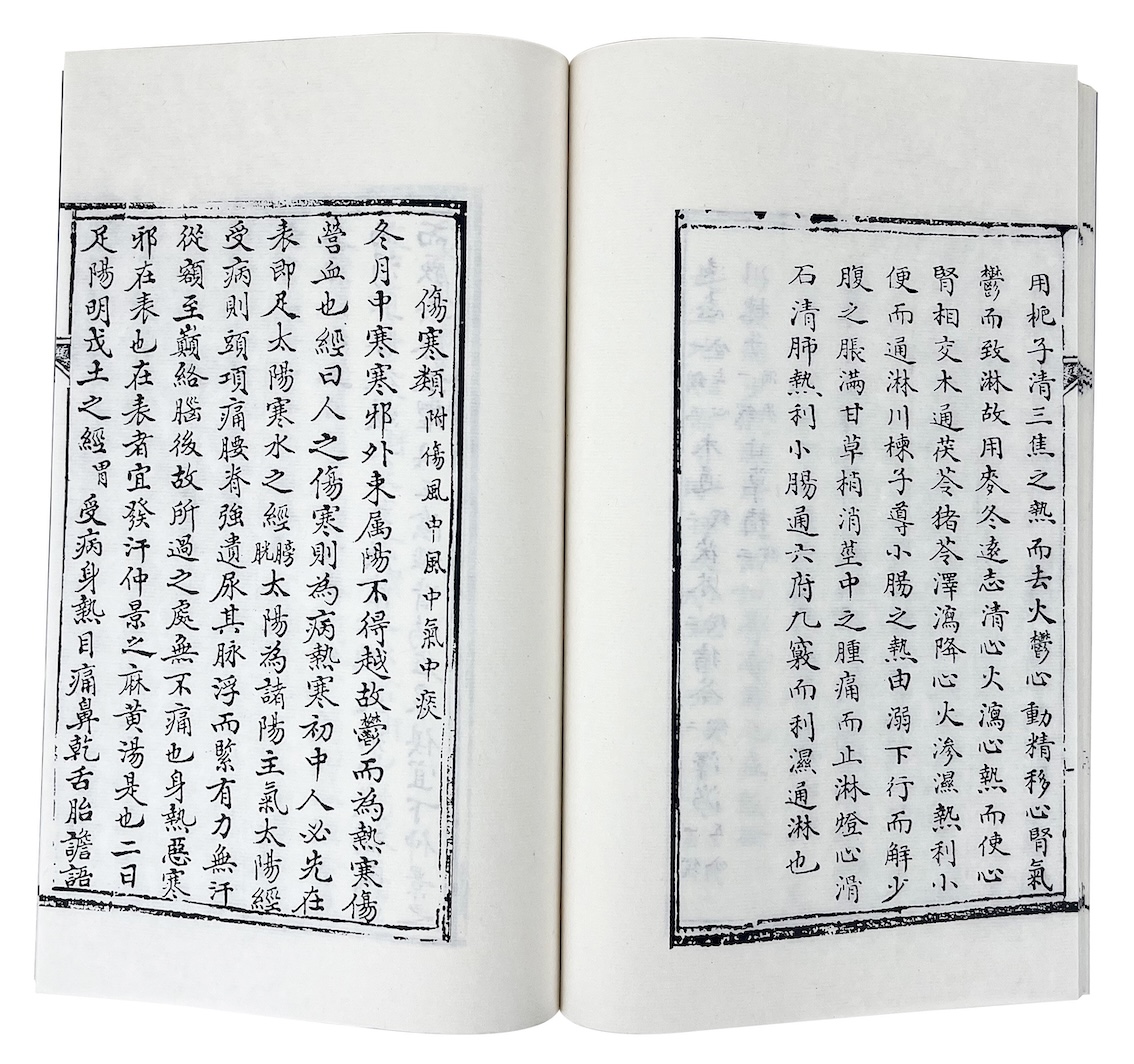 用栀子清三焦之熱而去火鬱心動精移心腎氣
鬱而致淋故用麥冬遠志清心火瀉心熱而使心
腎相交木通茯苓猪苓澤瀉降心火渗濕熱利小
便而通淋川楝子導小腸之熱由溺下行而解少
腹之脹滿甘草梢消莖中之腫痛而止淋燈心滑
石清肺熱利小腸通六府九竅而利濕通淋也
傷寒類附傷風中風中氣中痰
冬月中寒寒邪外束属陽不得越故鬱而為熱寒傷
營血也經曰人之傷寒則為病熱寒初中人必先在
表即足太陽寒水之經膀胱太陽為諸陽主氣太陽經
受病則頭項痛腰脊強遺尿其脉浮而緊有力無汗
從額至巔絡腦後故所過之處無不痛也身熱惡寒
邪在表也在表者宜發汗仲景之麻黄湯是也二日
足陽明戊土之經胃受病身熱目痛鼻乾舌胎譫語